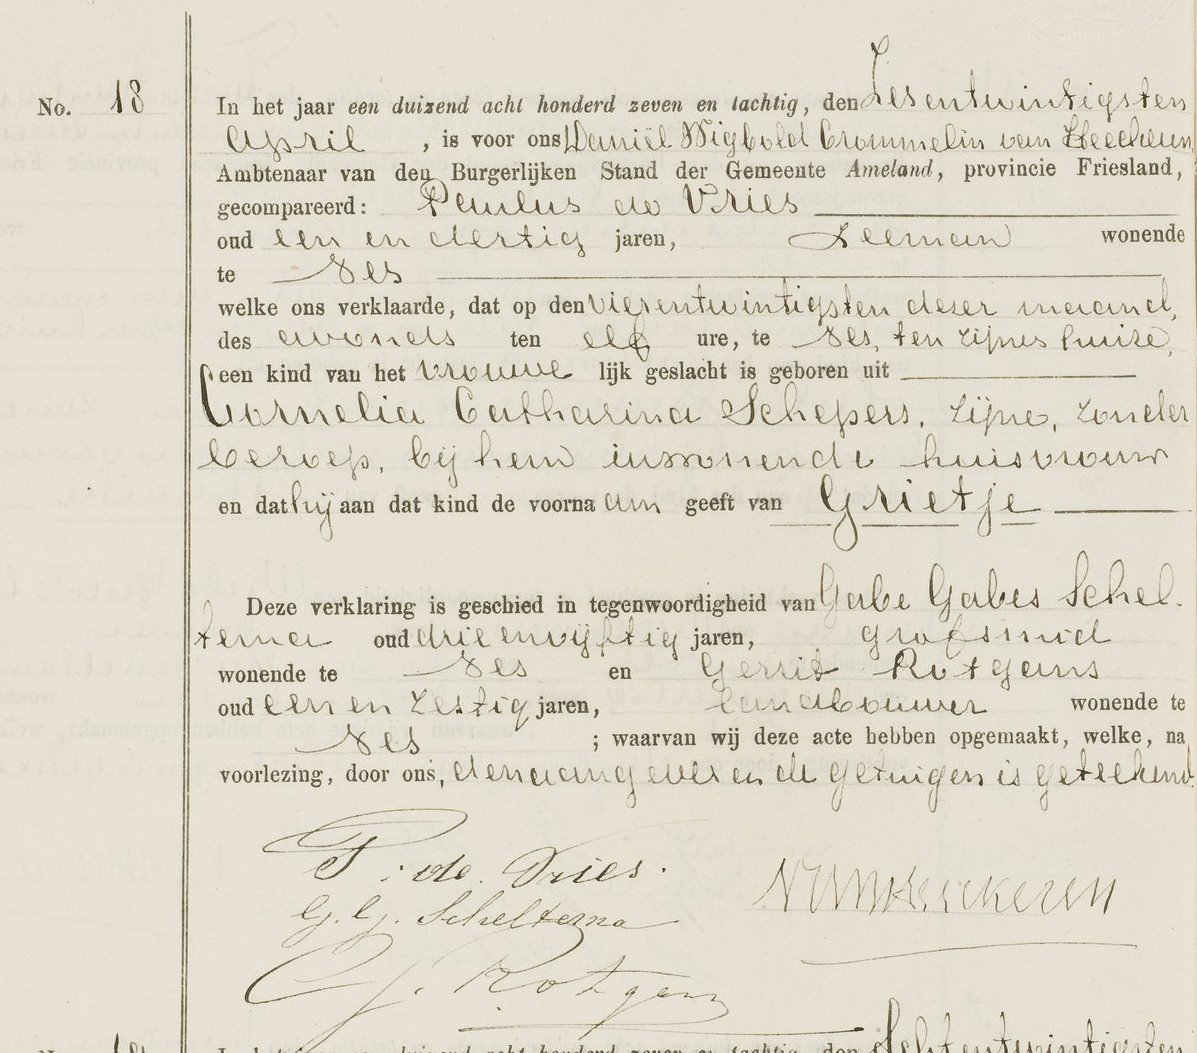 No. 18
In het jaar een duizend acht honderd zeven en tachtig, den Zesentwintigsten
April, is voor ons Daniël Wigbold Crommelin van Heeckeren
Ambtenaar van den Burgerlijken Stand der Gemeente Ameland, provincie Friesland,
gecompareerd: Paulus de Vries
oud een en dertig jaren, Zeeman wonende
te Nes
welke ons verklaarde, dat op den vierentwintigsten dezer maand,
des avonds ten elf ure, te Nes, ten zijnen huize,
een kind van het vrouwelijk geslacht is geboren uit
Cornelia Catharina Schepers, zijne, zonder
beroep, bij hem inwonende huisvrouw
en dat hij aan dat kind de voornaam geeft van Grietje
Deze verklaring is geschied in tegenwoordigheid van Gabe Gabes Schel-
tema oud drie en vijftig jaren, grofsmid
wonende te Nes en Gerrit Rotgans
oud een en zestig jaren, landbouwer wonende te
Nes ; waarvan wij deze acte hebben opgemaakt, welke, na
voorlezing, door ons, den aangever en de getuigen is geteekend.
P. de Vries.
G. G. Scheltema
G. Rotgans
Heeckeren
In het jaar een duizend acht honderd zeven en tachtig, den Achtentwintigsten